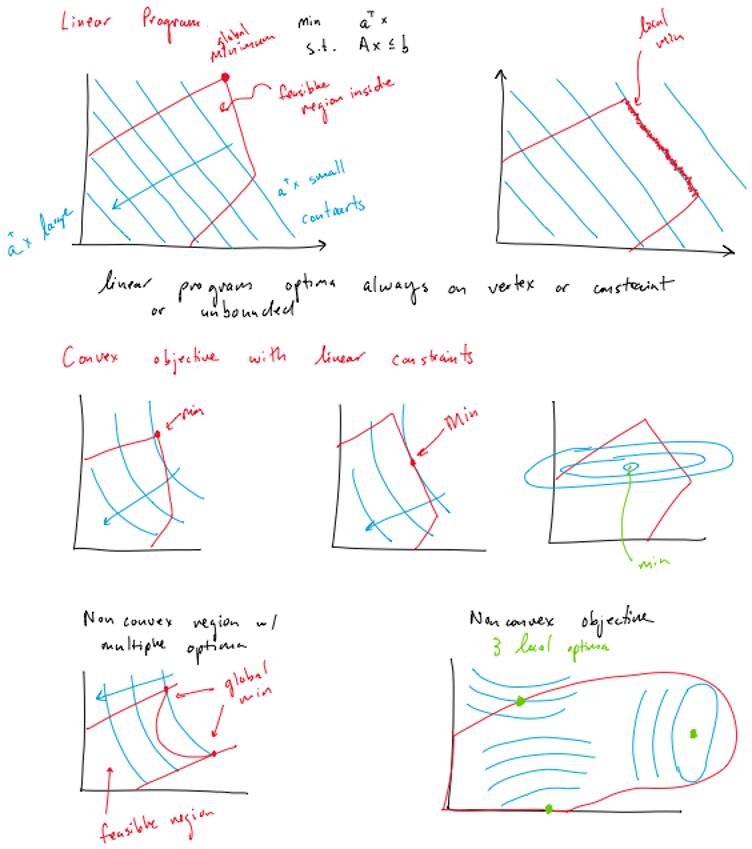 Linear Program.
min aᵀx
s.t. Ax ≤ b
global
minimum
feasible
region inside
aᵀx small
contours
aᵀx large
local
min
linear program optima always on vertex or constraint
or unbounded
Convex objective with linear constraints
min
Min
min
Non convex region w/
multiple optima
global
min
feasible region
Nonconvex objective
3 local optima